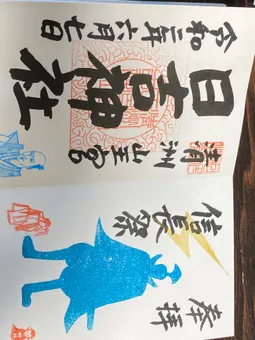 令和二年六月七日
日吉神社
清洲山王宮
奉拝
信長祭